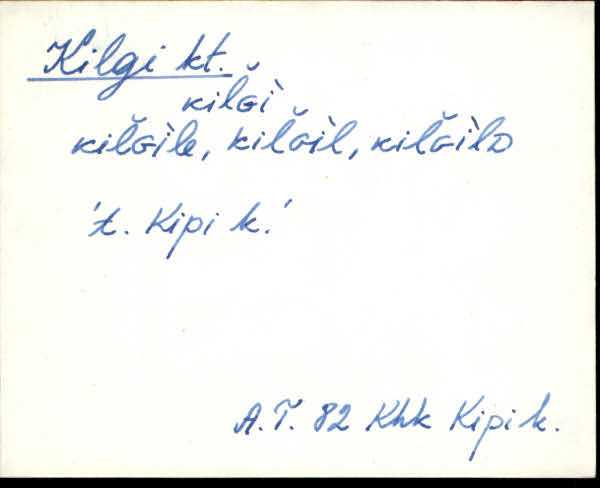 Kilgi kt.
kilɢ̆ì
kilɢ̆ìle, kilɢ̆ìl, kilɢ̆ìlᴅ
't. Kipi k.'
A.T. 82 Khk Kipi k.